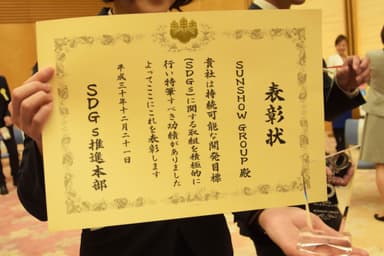 表彰状
SUNSHOW GROUP 殿
貴社は持続可能な開発目標
(SDGs)に関する取組を積極的に
行い特筆すべき功績がありました
よってここにこれを表彰します
平成三十年十二月二十一日
SDGs推進本部